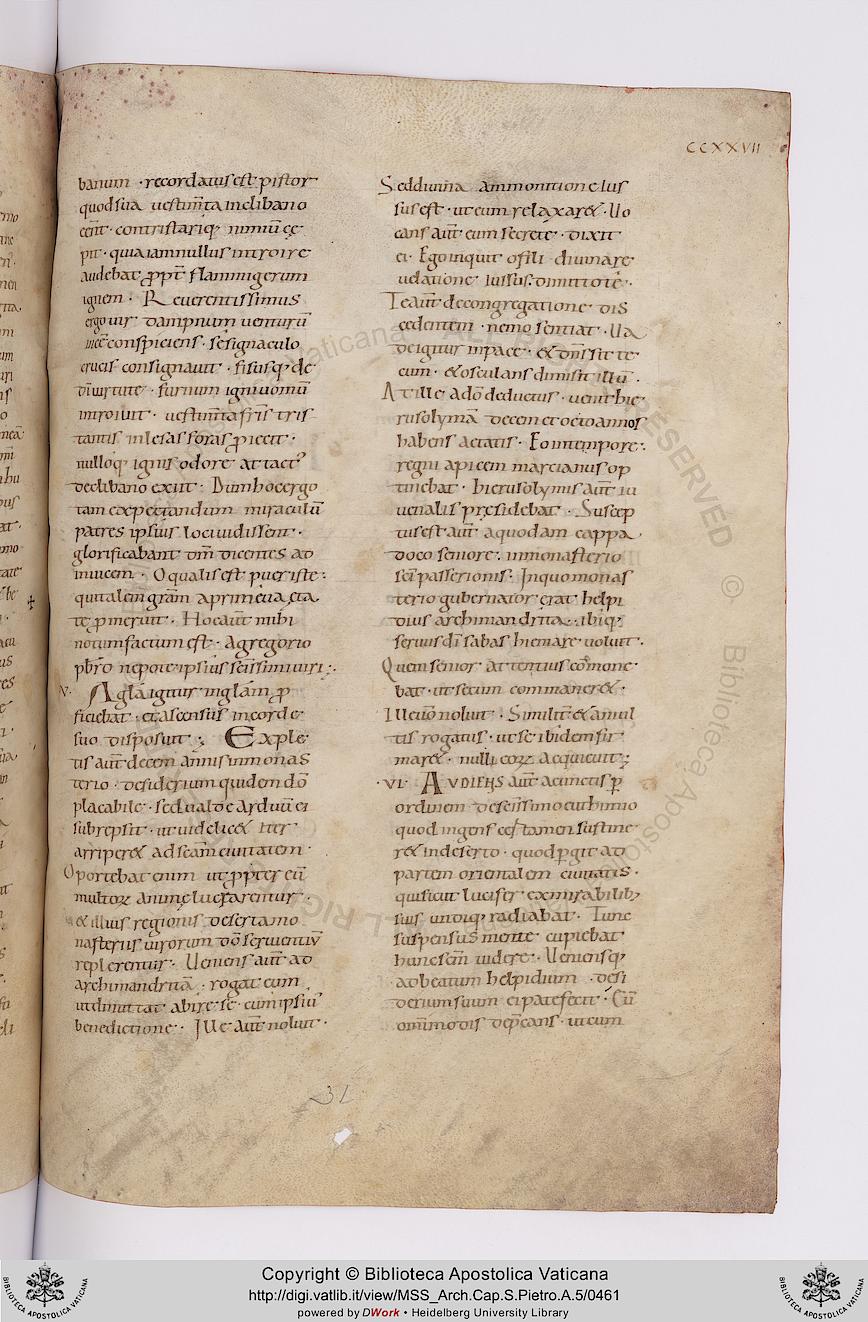 CCXXVII
banum · recordatus est pistor
quod sua uestim̄ta in clibano
cent · contristariq; nimiū cę
pit · quia iam nullus introire
audebat ꝓpt̄ flammigerum
ignem · Reuerentissimus
ergo uir · dampnum uenturū
conspiciens · se signaculo
crucis consignauit · fisusq; de
dī uirtute · furnum igniuomū
introiuit · uestim̄ta fr̄is tris
tantis inlesas foras ꝓiecit ·
nulloq; ignis odore attact᾿
de clibano exiit · Dum hoc ergo
tam expectandum miraculū
patres ipsius loci uidissent ·
glorificabant dm̄ dicentes ad
inuicem · O qualis est puer iste :
qui talem gr̄am a primeua ęta
te ꝓmeruit · Hoc aūt mihi
notum factum est · a gregorio
pbr̄o nepote ipsius sc̄issimi uiri :·
V· A gl̄a igitur in gl̄am ꝓ
ficiebat · et ascensus in corde
suo disposuit ; Exple
tis aūt decem annis in monas
terio · desiderium quidem dō
placabile · sed ualde arduū ei
subrepsit · ut uidelic& iter
arriper& ad sc̄am ciuitatem ·
Oportebat enim ut ꝓpter eū
multoꝝ animę lucrarentur ·
& illius regionis deserta mo
nasteriis uirorum dō seruientiū
replerentur · Ueniens aūt ad
archimandritā · rogat eum
ut dimittat abire se · cum ipsius
benedictione · Ille aūt noluit ·
Sed diuina ammonitione ius
sus est · ut eum relaxar& · Uo
cans aūt eum secrete · dixit
ei · Ego inquit o fili diuina re
uelatione iussus · dimitto te ·
Te aūt de congregatione dis
cedentem · nemo sentiat · Ua
de igitur in pace · & dn̄s sit te
cum · & osculans dimisit illū ·
At ille a dō deductus · uenit hie
rusolymā decem et octo annos
habens aetatis · Eo in tempore :
regni apicem marcianus op
tinebat · hierusolymis aūt iu
uenalis pręsidebat · Suscep
tus est aūt a quodam cappa
doco seniore · in monasterio
sc̄i passerionis · In quo monas
terio gubernator erat helpi
dius archimandrita · ibiq;
seruus dī sabas hiemare uoluit ·
Quem senior attentius cōmone
bat · ut secum commaner& ·
Ille uō noluit · Similit̄ & a mul
tis rogatus · ut se ibidem fir
mar& · nulli eoꝝ acquieuit ;
·VI· AUDIENS aūt a cunctis ꝑ
ordinem de sc̄issimo euthimio
quod ingens certamen sustine
r& in deserto · quod ꝑgit ad
partem orientalem ciuitatis ·
qui sicut lucifer ex mirabilib;
suis undiq; radiabat · Tunc
suspensus mente cupiebat
hunc sc̄m uidere · Ueniensq;
ad beatum helpidium · desi
derium suum ei patefecit · Cū
omīmodis dep̄cans · ut eum
31
Copyright © Biblioteca Apostolica Vaticana
http://digi.vatlib.it/view/MSS_Arch.Cap.S.Pietro.A.5/0461
powered by DWork • Heidelberg University Library
BIBLIOTECA APOSTOLICA VATICANA
BIBLIOTECA APOSTOLICA VATICANA